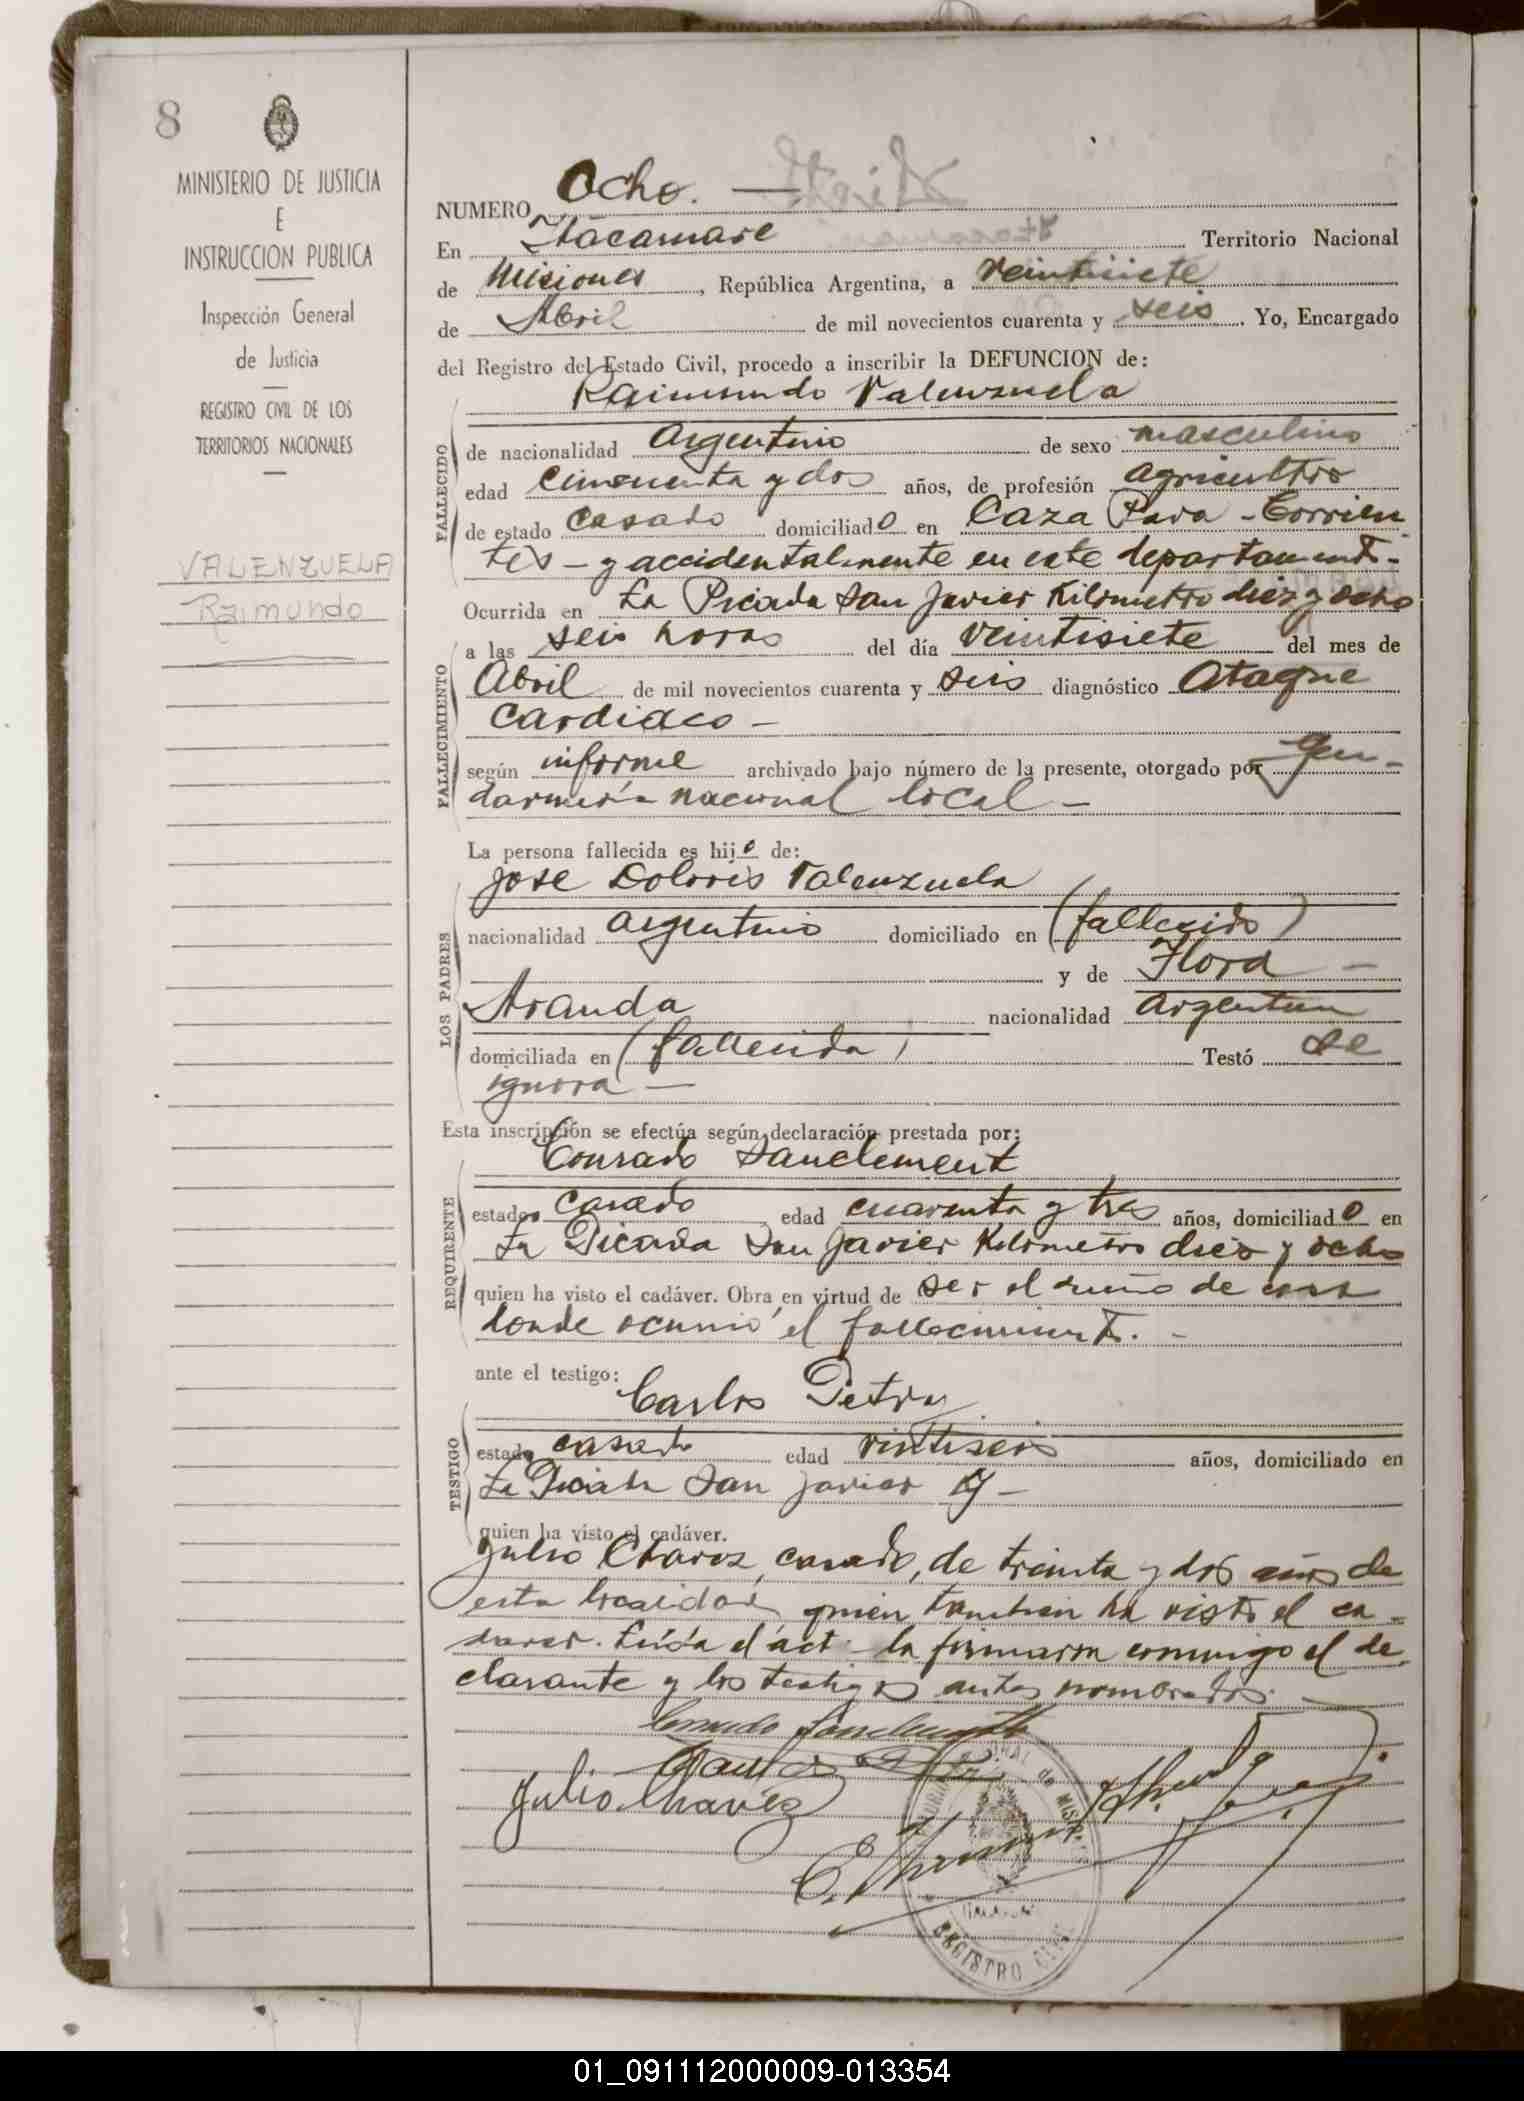 8
MINISTERIO DE JUSTICIA
E
INSTRUCCION PUBLICA
Inspección General
de Justicia
REGISTRO CIVIL DE LOS
TERRITORIOS NACIONALES
VALENZUELA
Raimundo
NUMERO Ocho.
En Itacaruare Territorio Nacional
de Misiones, República Argentina, a veintisiete
de Abril de mil novecientos cuarenta y seis. Yo, Encargado
del Registro del Estado Civil, procedo a inscribir la DEFUNCION de:
Raimundo Valenzuela
FALLECIDO
de nacionalidad argentino de sexo masculino
edad cincuenta y dos años, de profesión agricultor
de estado casado domiciliado en Caza Pava - Corrien
tes - y accidentalmente en este departamento -
FALLECIMIENTO
Ocurrida en La Picada San Javier Kilometro diez y ocho
a las seis horas del día veintisiete del mes de
Abril de mil novecientos cuarenta y seis diagnóstico Ataque
cardiaco -
según informe archivado bajo número de la presente, otorgado por Gen-
darmeria nacional local -
La persona fallecida es hijo de:
LOS PADRES
Jose Dolores Valenzuela
nacionalidad argentino domiciliado en (fallecido)
y de Flora -
Aranda nacionalidad argentina
domiciliada en (fallecida) Testó se
ignora -
Esta inscripción se efectúa según declaración prestada por:
REQUIRENTE
Conrado Sanclement
estado casado edad cuarenta y tres años, domiciliado en
La Picada San Javier Kilometro diez y ocho
quien ha visto el cadáver. Obra en virtud de ser el dueño de casa
donde ocurrió el fallecimiento. -
ante el testigo:
TESTIGO
Carlos Petry
estado casado edad vintiseis años, domiciliado en
La Picada San Javier y -
quien ha visto el cadáver.
Julio Chavez, casado, de treinta y dos años de
esta localidad quien tambien ha visto el ca-
daver. Leída el acta la firmaron conmigo el de
clarante y los testigos antes nombrados.
Conrado Sanclement
Carlos Petry
Julio Chavez
REGISTRO CIVIL
01_091112000009-013354